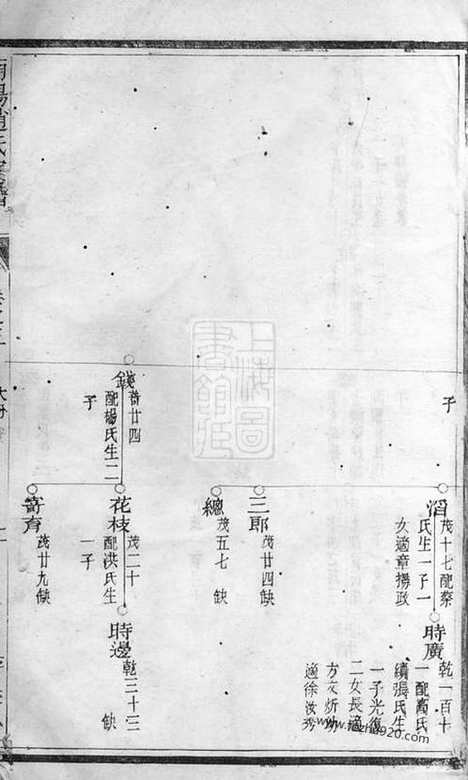 子
滔
茂十七配蔡
氏生一子一
女適章揚政
時廣
乾一百十
一配高氏
續張氏生
一子光復
二女長適
適徐汝秀
三郎
茂廿四缺
總
茂五七 缺
錢
廿四
配楊氏生二
子
花枝
茂二十
配洪氏生
一子
時邊
乾三十三
缺
茂廿九缺
陽趙氏宗譜
上海圖
書館藏